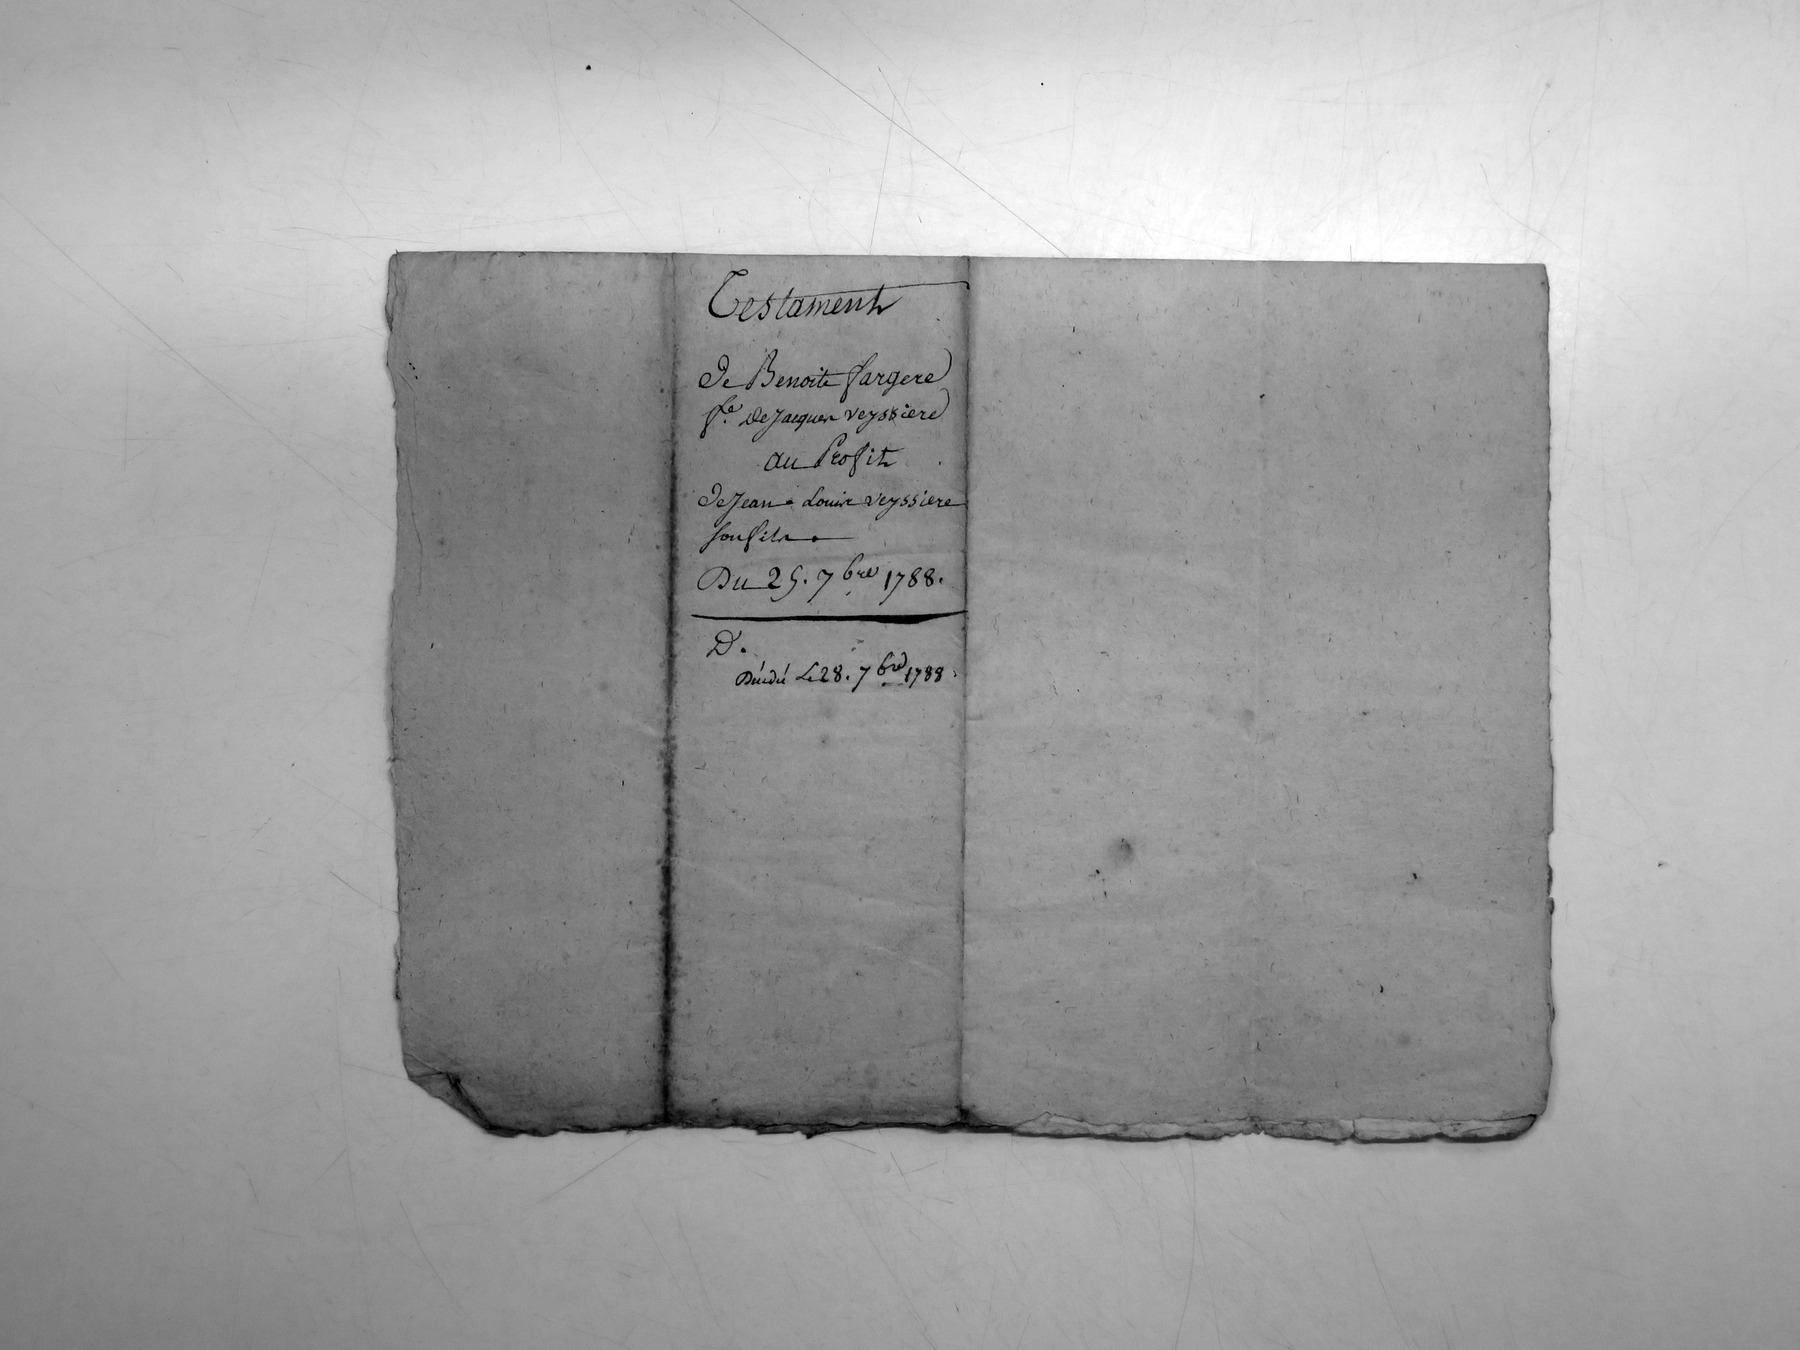 Testament
De Benoite fargere
fe. De Jacques veyssiere
au Profit
De Jean-Louis veyssiere
son fils.
Du 25. 7bre 1788.
D.
Le 28. 7bre 1788.